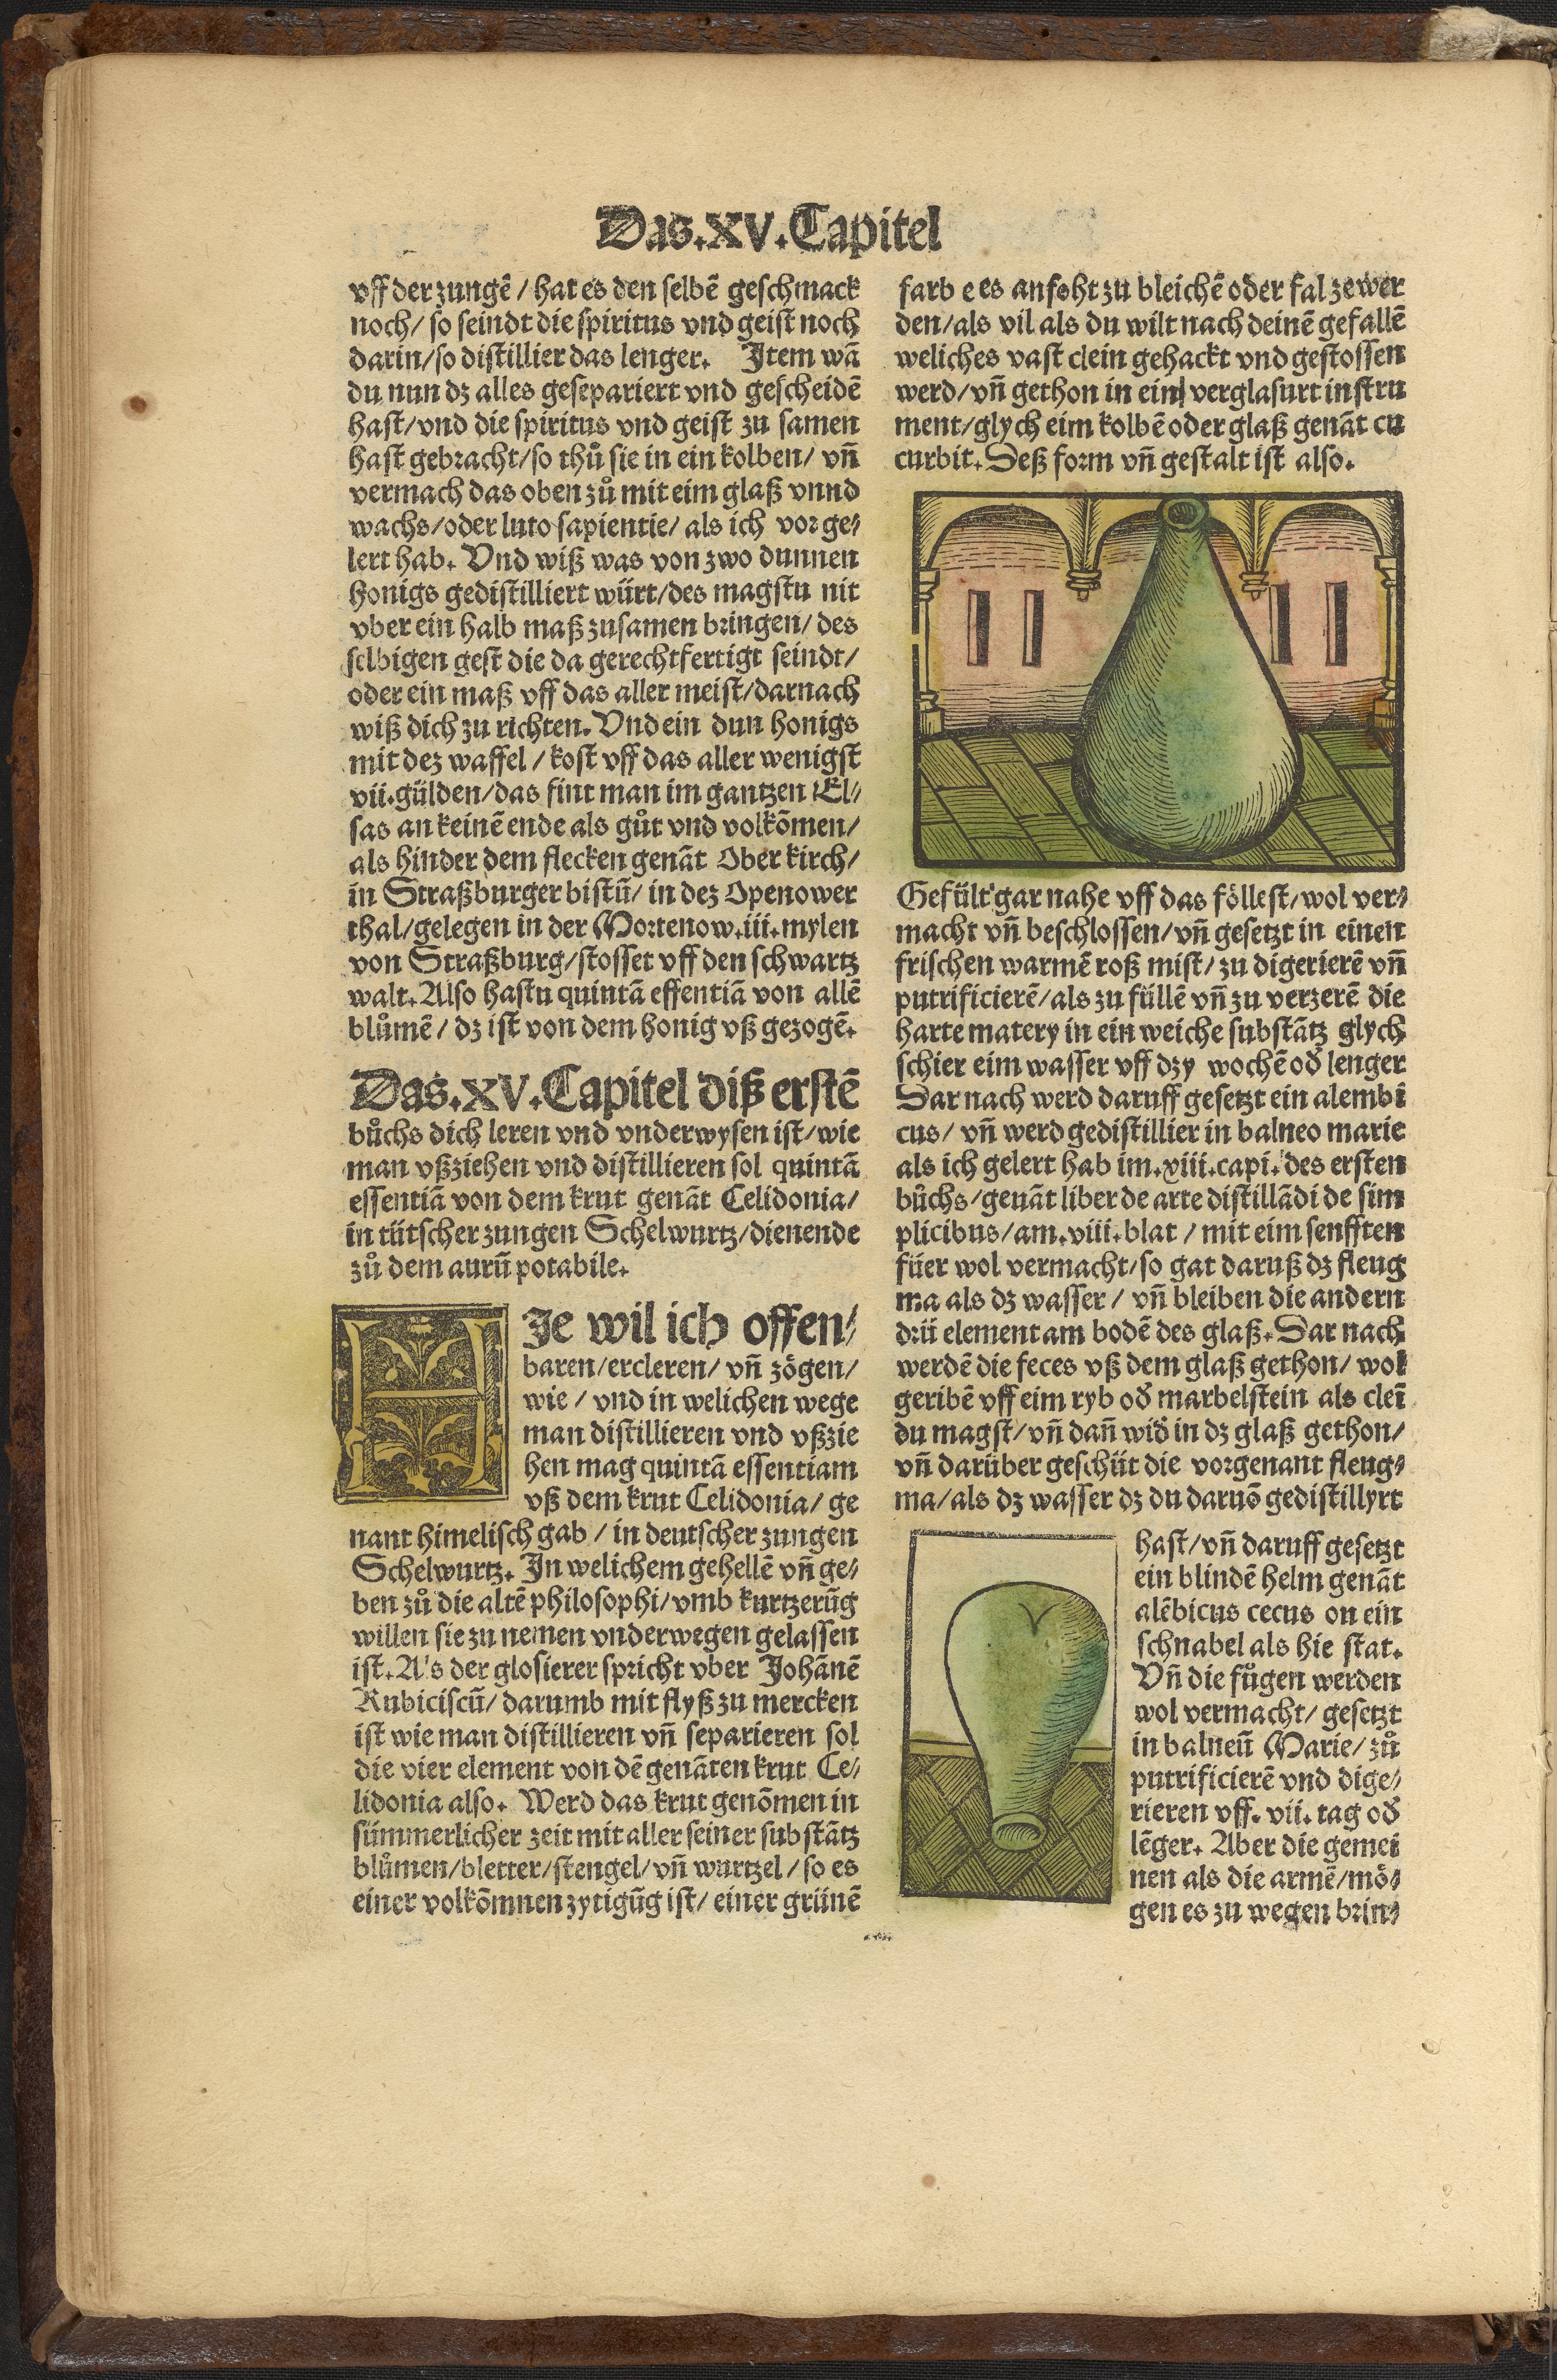 Das.XV.Capitel
vff der zungē / hat es den selbē geschmack
noch/ so seindt die spiritus vnd geist noch
darin/so distillier das lenger. Item wā
du nun dz alles gesepariert vnd gescheidē
hast/vnd die spiritus vnd geist zu samen
hast gebracht/so thů sie in ein kolben/ vn̄
vermach das oben zů mit eim glaß vnnd
wachs/oder luto sapientie/ als ich vor ge⸗
lert hab. Vnd wiß was von zwo dunnen
honigs gedistilliert würt/des magstu nit
vber ein halb maß zusamen bringen/ des
selbigen gest die da gerechtfertigt seindt/
oder ein maß vff das aller meist/darnach
wiß dich zu richten. Vnd ein dun honigs
mit dez waffel / kost vff das aller wenigst
vii.gülden/das fint man im gantzen El⸗
sas an keinē ende als gůt vnd volkōmen/
als hinder dem flecken genāt Ober kirch/
in Straßburger bistū/ in dez Openower
thal/gelegen in der Mortenow.iii.mylen
von Straßburg/stosset vff den schwartz
walt. Also hastu quintā essentiā von allē
blůmē / dz ist von dem honig vß gezogē.
Das.XV.Capitel diß erstē
bůchs dich leren vnd vnderwysen ist/wie
man vßziehen vnd distillieren sol quintā
essentiā von dem krut genāt Celidonia/
in tütscher zungen Schelwurtz/dienende
zů dem aurū potabile.
HJe wil ich offen⸗
baren/ercleren/ vn̄ zögen/
wie / vnd in welichen wege
man distillieren vnd vßzie
hen mag quintā essentiam
vß dem krut Celidonia/ ge
nant himelisch gab / in deutscher zungen
Schelwurtz. In welichem gehellē vn̄ ge⸗
ben zů die altē philosophi/vmb kurtzerūg
willen sie zu nemen vnderwegen gelassen
ist. Als der glosierer spricht vber Johānē
Rubiciscū/ darumb mit flyß zu mercken
ist wie man distillieren vn̄ separieren sol
die vier element von dē genāten krut Ce⸗
lidonia also. Werd das krut genōmen in
sümmerlicher zeit mit aller seiner substātz
blůmen/bletter/stengel/vn̄ wurtzel / so es
einer volkōmnen zytigūg ist/ einer grünē
farb e es anfoht zu bleichē oder fal ze wer
den/als vil als du wilt nach deinē gefallē
weliches vast clein gehackt vnd gestossen
werd/vn̄ gethon in ein verglasurt instru
ment/glych eim kolbē oder glaß genāt cu
curbit. Deß form vn̄ gestalt ist also.
Gefült gar nahe vff das föllest/wol ver⸗
macht vn̄ beschlossen/vn̄ gesetzt in einen
frischen warmē roß mist/ zu digerierē vn̄
putrificierē/als zu füllē vn̄ zu verzerē die
harte matery in ein weiche substātz glych
schier eim wasser vff dry wochē od̄ lenger
Dar nach werd daruff gesetzt ein alembi
cus/ vn̄ werd gedistillier in balneo marie
als ich gelert hab im.xiii.capi. des ersten
bůchs/genāt liber de arte distillādi de sim
plicibus/am.viii.blat / mit eim senfften
füer wol vermacht/so gat daruß dz fleug
ma als dz wasser / vn̄ bleiben die andern
drü element am bodē des glaß. Dar nach
werdē die feces vß dem glaß gethon/ wol
geribē vff eim ryb od̄ marbelstein als cleī
du magst/vn̄ dan̄ wid̄ in dz glaß gethon/
vn̄ darüber geschüt die vorgenant fleug⸗
ma/als dz wasser dz du daruō gedistillyrt
hast/vn̄ daruff gesetzt
ein blindē helm genāt
alēbicus cecus on ein
schnabel als hie stat.
Vn̄ die fůgen werden
wol vermacht/ gesetzt
in balneū Marie/ zů
putrificierē vnd dige⸗
rieren vff. vii. tag od̄
lēger. Aber die gemei
nen als die armē/mö⸗
gen es zu wegen brin⸗